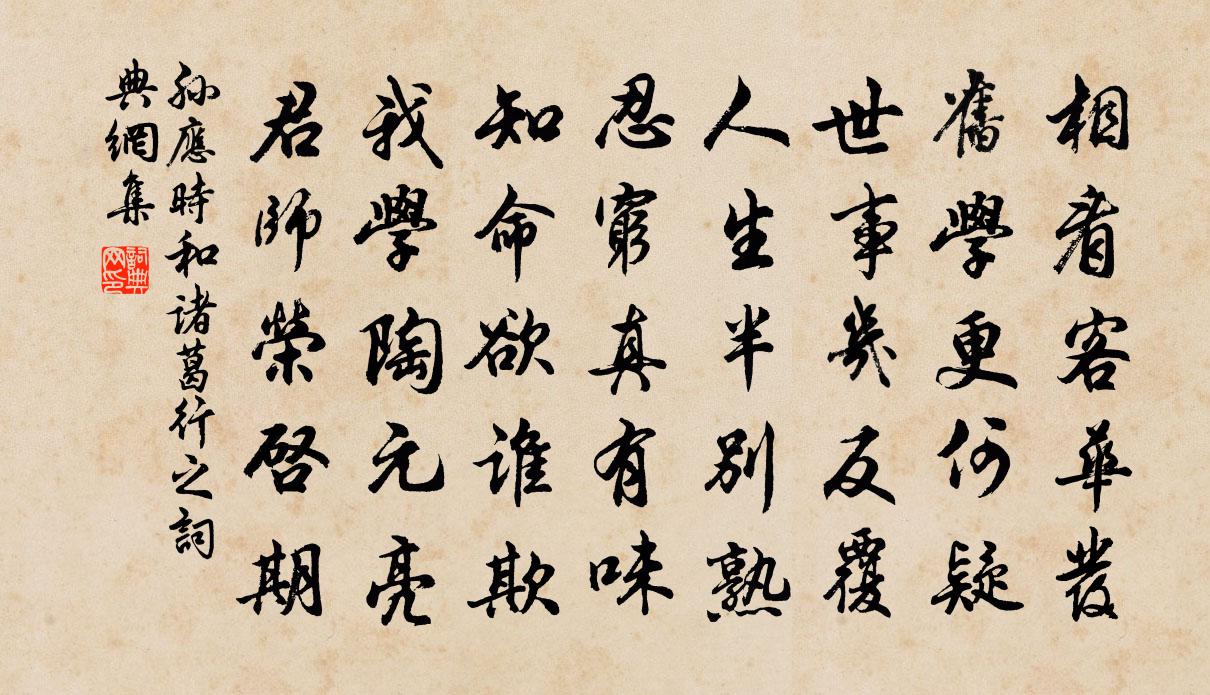 相看客華發
舊學更何疑
世事幾反覆
人生半別熟
忍窮真有味
知命欲誰欺
我學陶元亮
君師榮啓期
孫應時和諸葛行之詞
典網集
詞典
网印